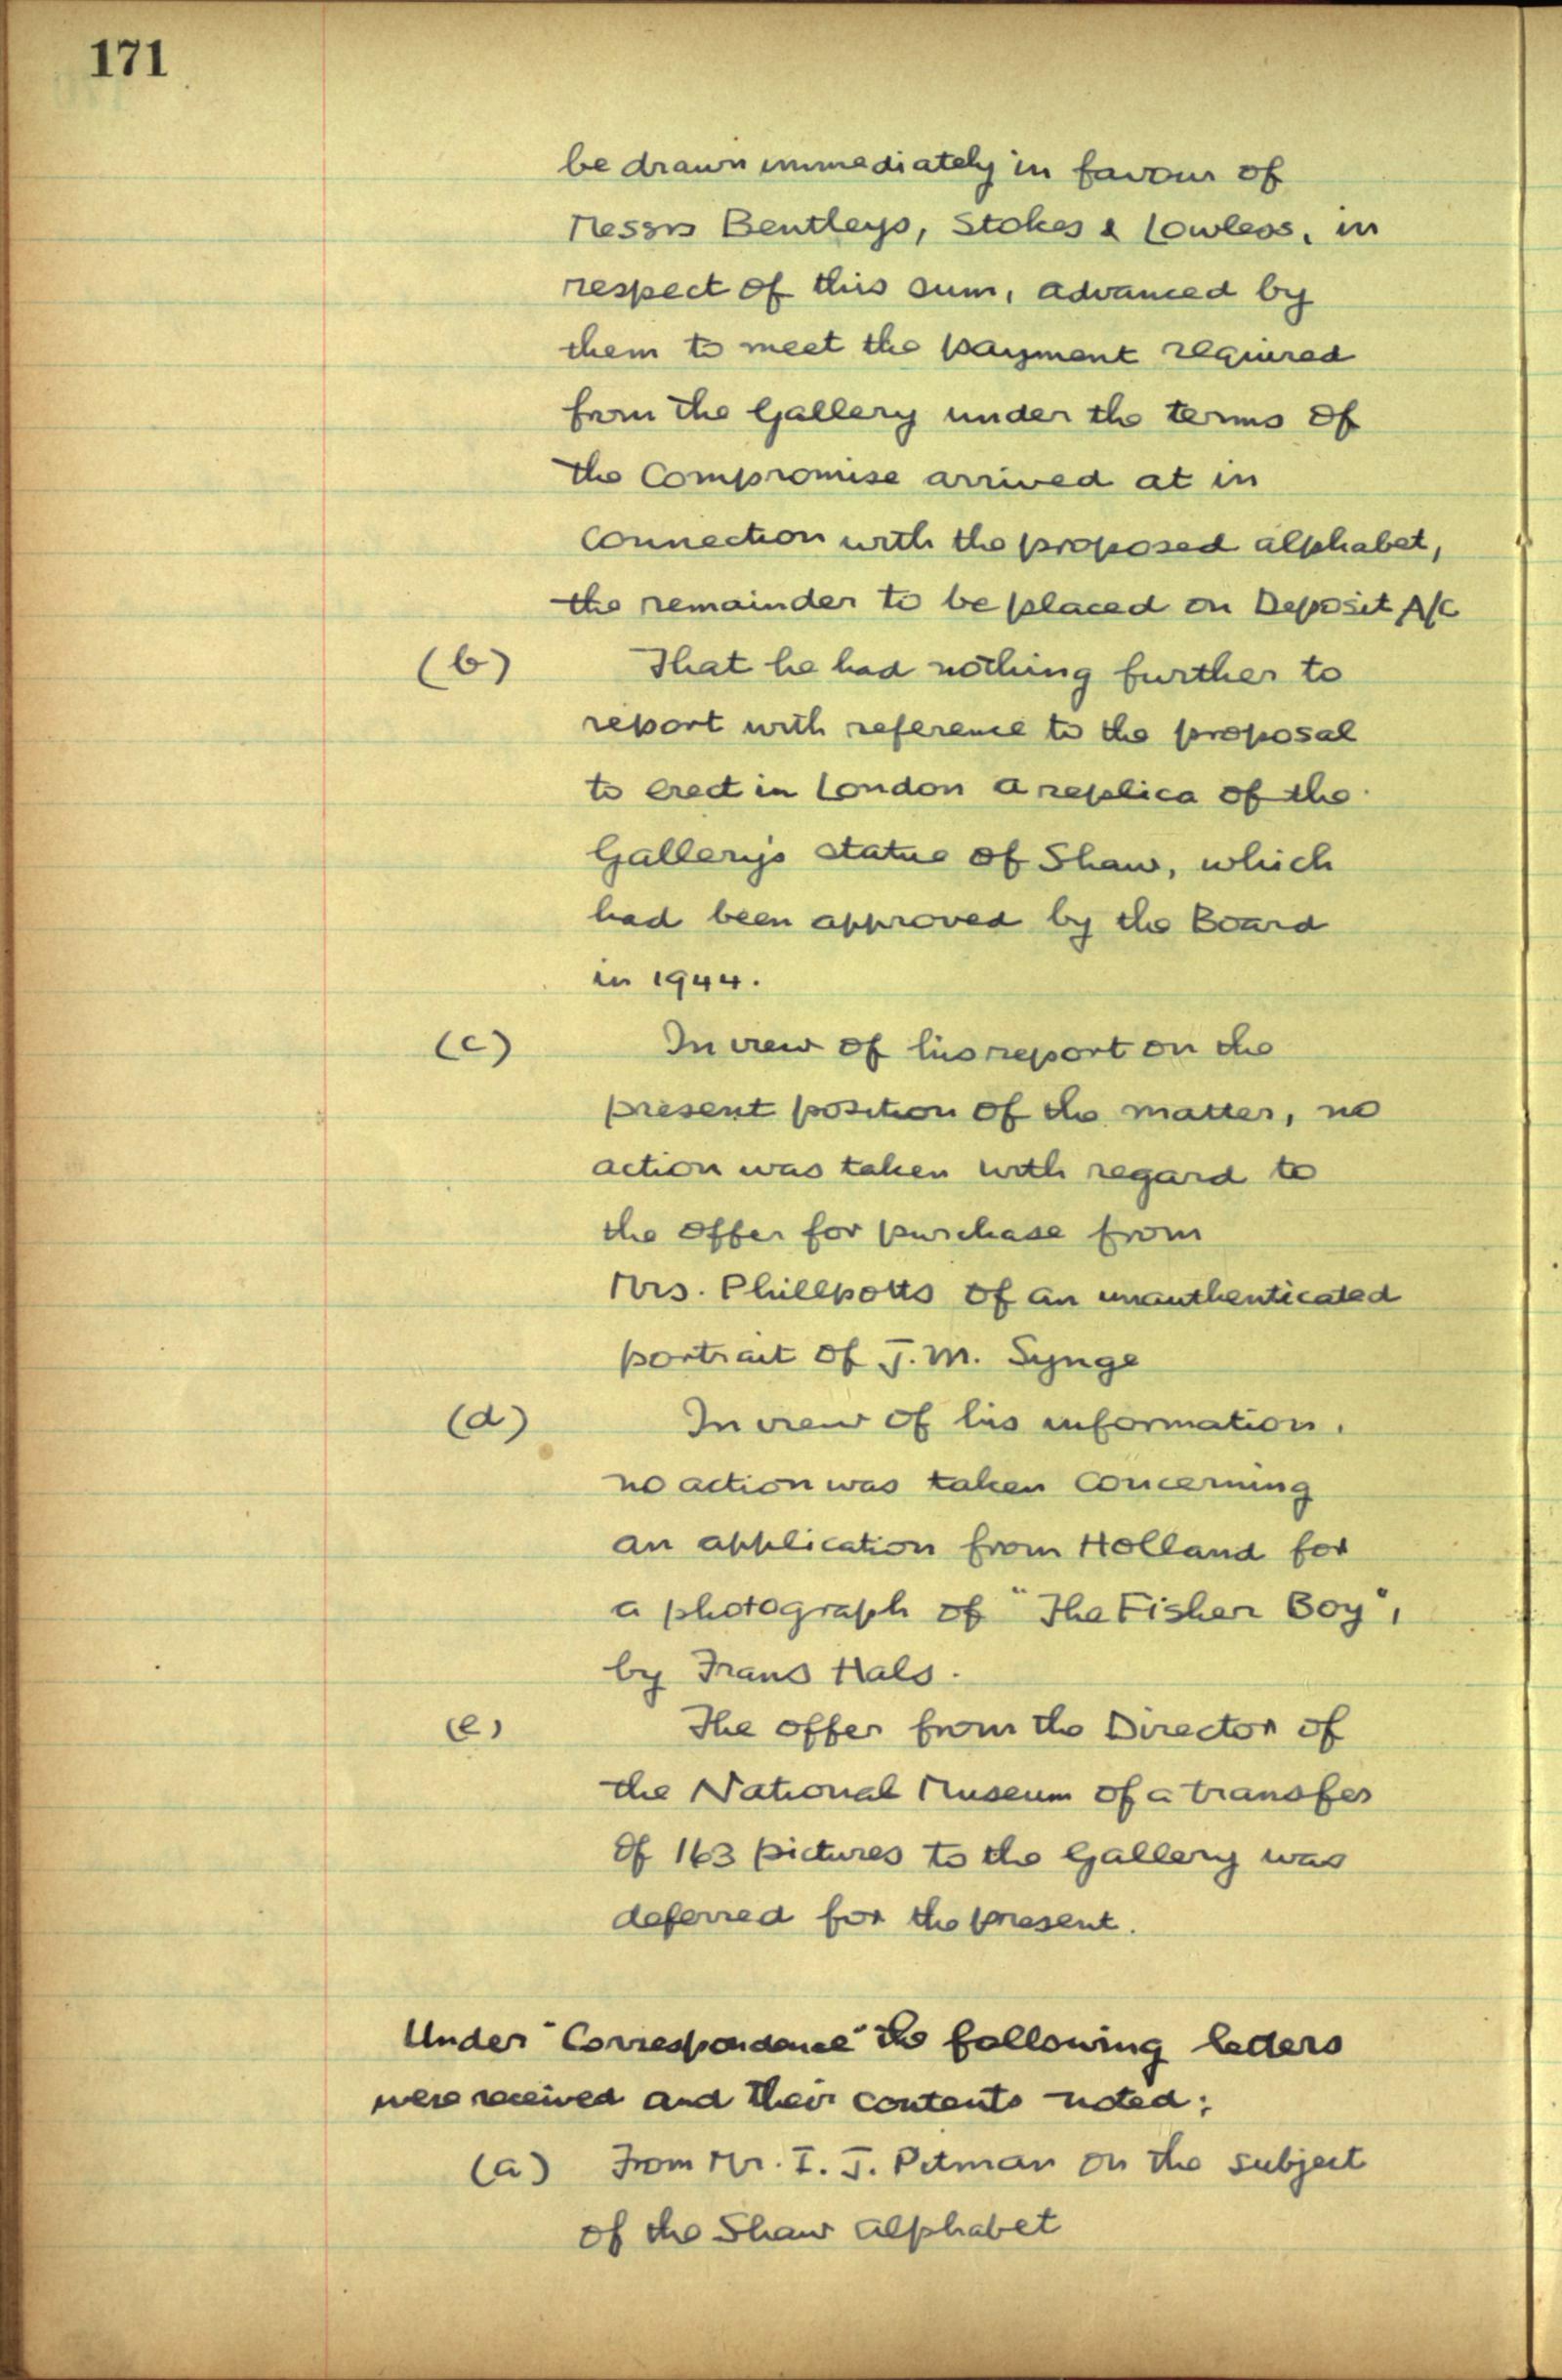 171
be drawn immediately in favour of
Messrs Bentleys, Stokes & Lowless, in
respect of this sum, advanced by
them to meet the payment required
from the Gallery under the terms of
the Compromise arrived at in
connection with the proposed alphabet,
the remainder to be placed on Deposit A/C
(b) That he had nothing further to
report with reference to the proposal
to erect in London a replica of the
Gallery's statue of Shaw, which
had been approved by the Board
in 1944.
(c) In view of his report on the
present position of the matter, no
action was taken with regard to
the offer for purchase from
Mrs. Phillpotts of an unauthenticated
portrait of J.M. Synge
(d) In view of his information,
no action was taken concerning
an application from Holland for
a photograph of "The Fisher Boy",
by Frans Hals.
(e) The offer from the Director of
the National Museum of a transfer
of 163 pictures to the Gallery was
deferred for the present.
Under "Correspondence" the following letters
were received and their contents noted:
(a) From Mr. I. J. Pitman on the subject
of the Shaw alphabet